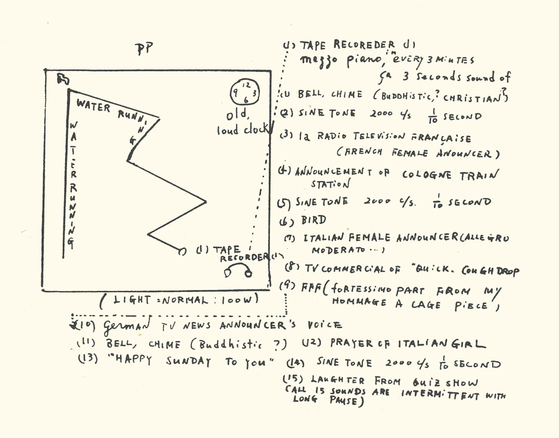 PP
WATER RUNNING
WATER RUNNING
12
9 3
6
old,
loud clock
(1) TAPE
RECORDER (1)
(LIGHT = NORMAL: 100W)
(1) TAPE RECOREDER (1)
mezzo piano, in every 3 MINUTES
ça 3 seconds sound of
(1) BELL, CHIME (BUDDHISTIC,? CHRISTIAN?)
(2) SINE TONE 2000 c/s 1/10 SECOND
(3) la RADIO TELEVISION FRANÇAISE
(FRENCH FEMALE ANOUNCER)
(4) ANNOUNCEMENT OF COLOGNE TRAIN
STATION
(5) SINE TONE 2000 c/s. 1/10 SECOND
(6) BIRD
(7) ITALIAN FEMALE ANNOUNCER (ALLEGRO
MODERATO...)
(8) TV COMMERCIAL OF "QUICK. COUGH DROP
(9) FFF (fORTESSIMO PART FROM MY
HOMMAGE A CAGE PIECE,
(10) German TV NEWS ANNOUNCER'S VOICE
(11) BELL, CHIME (Buddhistic ?) (12) PRAYER OF ITALIAN GIRL
(13) "HAPPY SUNDAY TO YOU" (14) SINE TONE 2000 c/s 1/10 SECOND
(15) LAUGHTER FROM QUIZ SHOW
(ALL 15 SOUNDS ARE INTERMITTENT WITH
LONG PAUSE)